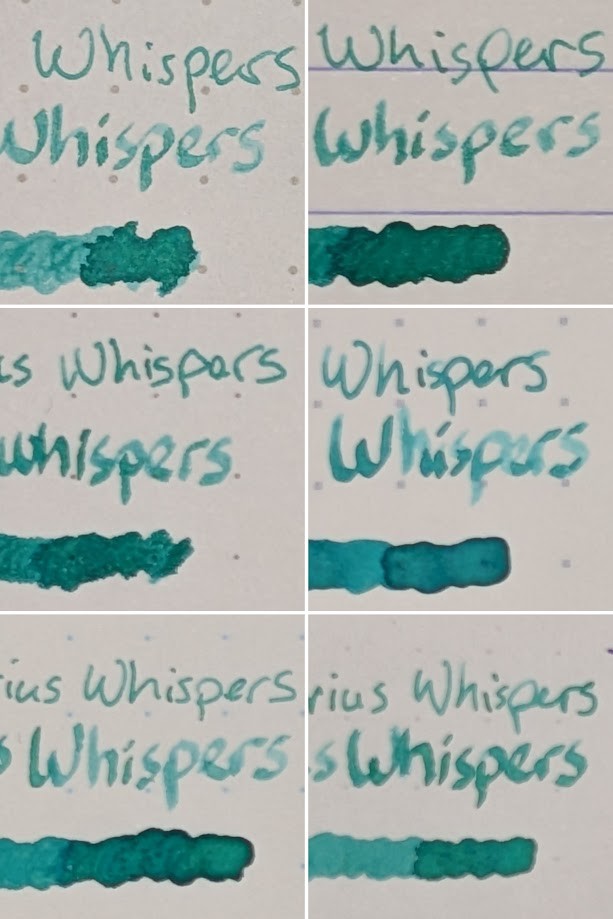 Whispers
Whispers
Whispers
Whispers
us Whispers
Whispers
Whispers
Whispers
ius Whispers
s Whispers
rius Whispers
s Whispers